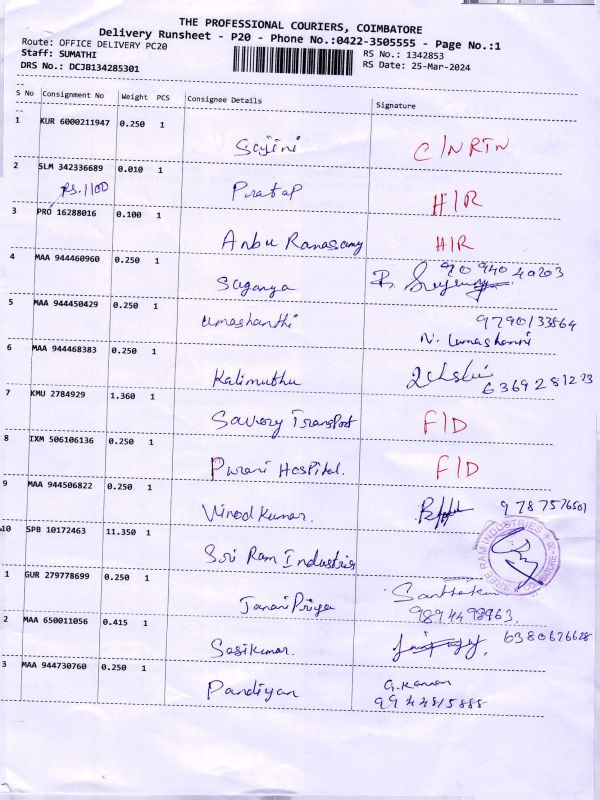 THE PROFESSIONAL COURIERS, COIMBATORE
Delivery Runsheet - P20 - Phone No.:0422-3505555 - Page No.:1
Route: OFFICE DELIVERY PC20
Staff: SUMATHI
DRS No.: DCJB134285301
RS No.: 1342853
RS Date: 25-Mar-2024
S No Consignment No Weight PCS Consignee Details Signature
1 KUR 6000211947 0.250 1
Sajini C/N RTN
2 SLM 342336689 0.010 1
Rs.1100 Pratap H/R
3 PRO 16288016 0.100 1
Anbu Ramasamy H/R
4 MAA 944460960 0.250 1
Suganya 9094040203
5 MAA 944450429 0.250 1
Umashanthi 9790133864
N. Umashanthi
6 MAA 944468383 0.250 1
Kalimuthu 6369281223
7 KMU 2784929 1.360 1
Savery Transport F/D
8 IXM 506106136 0.250 1
Purani Hospital. F/D
9 MAA 944506822 0.250 1
Vinod Kumar. 9787576501
10 SPB 10172463 11.350 1
Sri Ram Industries
SREE RAM INDUSTRIES
1 GUR 279778699 0.250 1
Janani Priya
9894493963.
2 MAA 650011056 0.415 1
Sasikumar. 6380676628
3 MAA 944730760 0.250 1
Pandiyan G. Kannan
9944815888